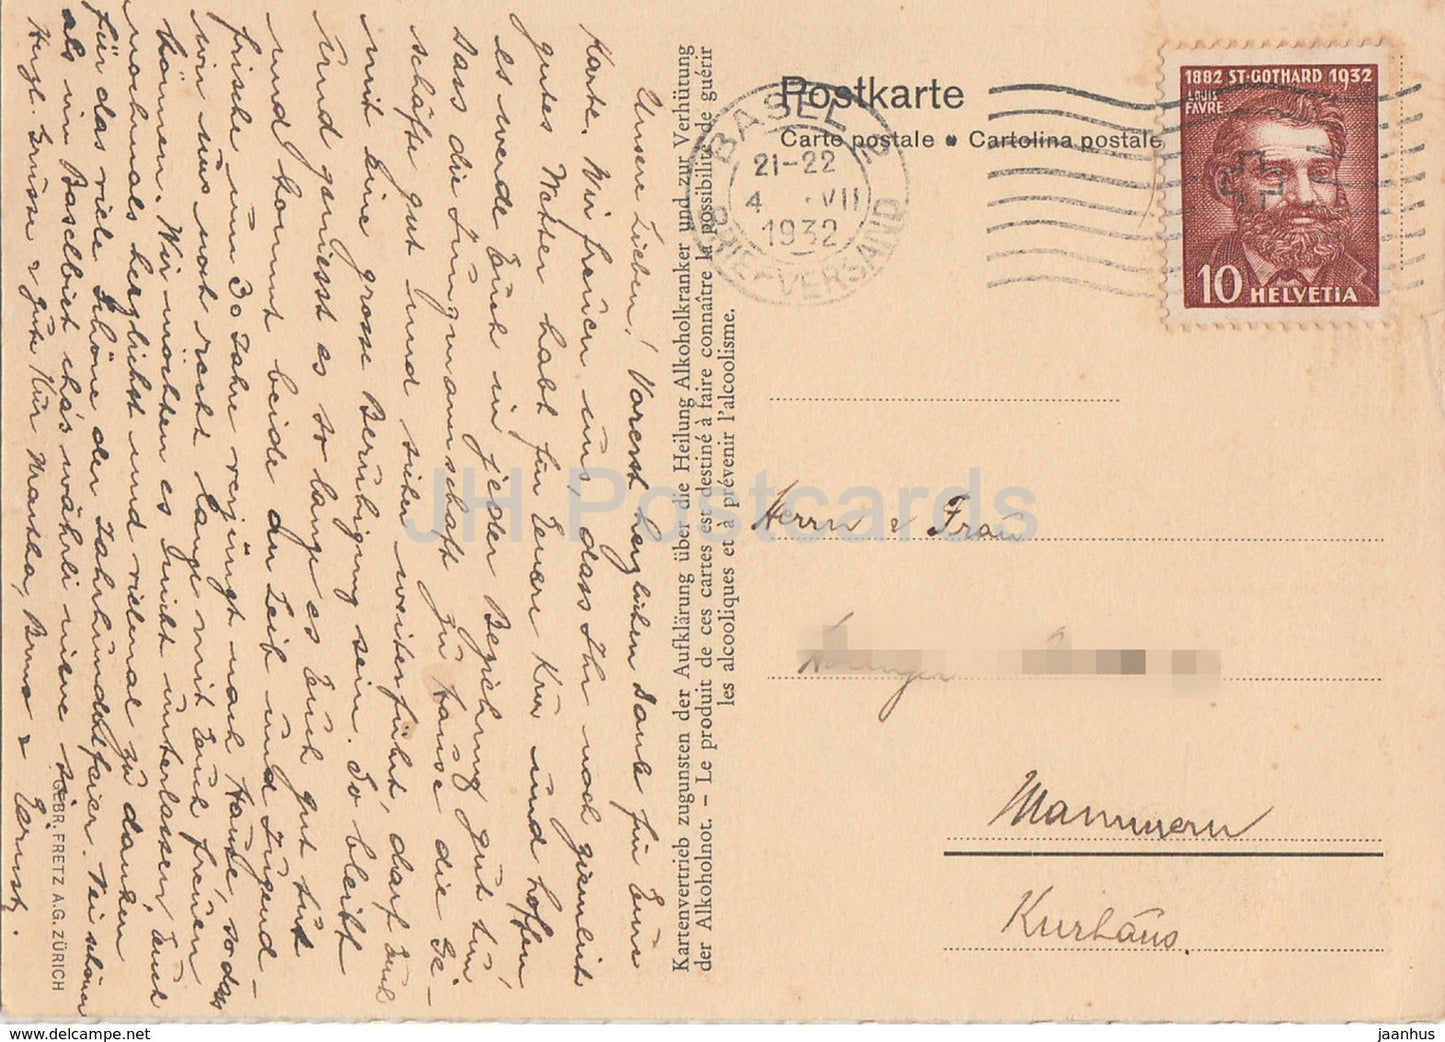 Postkarte
Carte postale • Cartolina postale
BASEL 2
21-22
4 . VII
1932
BRIEF-VERSAND
1882 ST-GOTHARD 1932
LOUIS
FAVRE
10 HELVETIA
Herrn & Frau
Mammern
Kurhaus.
Kartenvertrieb zugunsten der Aufklärung über die Heilung Alkoholkranker und zur Verhütung
der Alkoholnot. – Le produit de ces cartes est destiné à faire connaître la possibilité de guérir
les alcooliques et à prévenir l'alcoolisme.
Unsere Lieben! Vorerst herzlichen Dank für Eure
Karte. Wir freuen uns, dass Ihr noch ziemlich
gutes Wetter habt für Eure Kur und hoffen
es werde Euch in jeder Beziehung gut tun
Dass die Jungmannschaft zu Hause die Ge-
schäfte gut und sicher weiterführt, darf Euch
mit eine grosse Beruhigung sein. So bleibt
und geniesst es so lange es Euch gut tut
und kommt beide an Leib und Jugend-
frische um 30 Jahre verjüngt nach Hause, sodass
wir uns noch recht lange mit Euch freuen
können. Wir möchten es nicht unterlassen, Euch
nochmals herzlichst und vielmal zu danken
für das viele Schöne der Jahrhundertfeier.
als im Baselbiet cha's währli niene
Herzl. Grüsse & gute Kur Martha, Bruno &
GEBR. FRETZ A.G. ZÜRICH
JH Postcards
jaanhus - delcampe.net